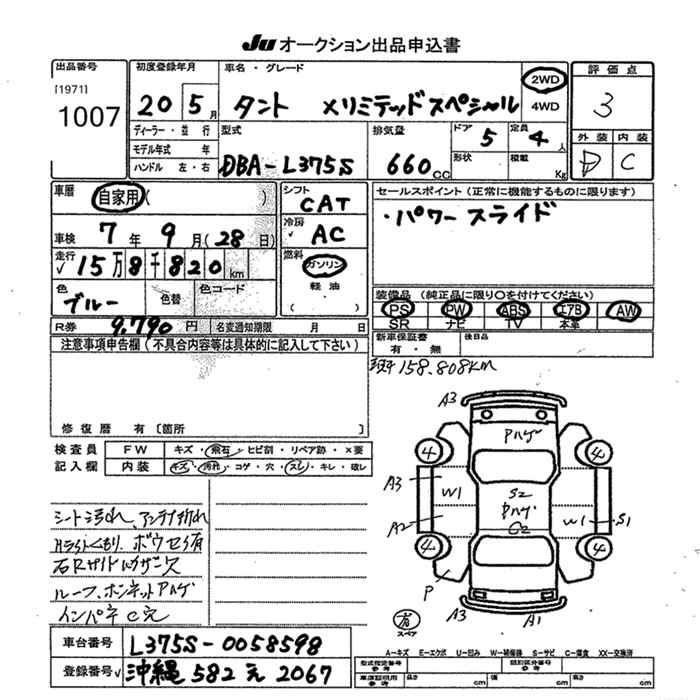 JU オークション出品申込書
出品番号
[1971]
1007
初度登録年月
20 5月
車名・グレード
タント Xリミテッドスペシャル
2WD
4WD
評価点
3
外装 内装
D C
ディーラー・並行
モデル年式 年
ハンドル 左・右
型式
DBA-L375S
排気量
660 CC
ドア 5
形状
定員 4 人
積載 Kg
車歴
自家用( )
車検 7年 9月(28日)
走行
√ 15万8千820km
色
ブルー
色替
色コード
シフト
CAT
冷房
√ AC
燃料
ガソリン
軽油
( )
セールスポイント(正常に機能するものに限ります)
・パワースライド
装備品 (純正品に限り○を付けてください)
PS PW ABS エアB AW
SR ナビ TV 本革
新車保証書
有・無
後日品
R券 9,790円
名変通知期限 月 日
注意事項申告欄(不具合内容等は具体的に記入して下さい)
158.808km
修復歴 有〔箇所
検査員
記入欄
FW キズ・飛石・ヒビ割・リペア跡・×要
内装 キズ・汚れ・コゲ・穴・スレ・キレ・破レ
シート汚れ、アンテナ折れ
ルーフ、ボンネットAハゲ
A3
4 4
A3 W1
A2
S2
C2
W1 S1
4 4
P
A3 A1
スペア
車台番号 L375S-0058598
登録番号√ 沖縄 582 え 2067
A-キズ E-エクボ U-凹み W-補修跡 S-サビ C-腐食 XX-交換済
型式指定番号
参考
類別区分番号
参考
車庫証明用
参考
長さ cm 幅 cm 高さ cm